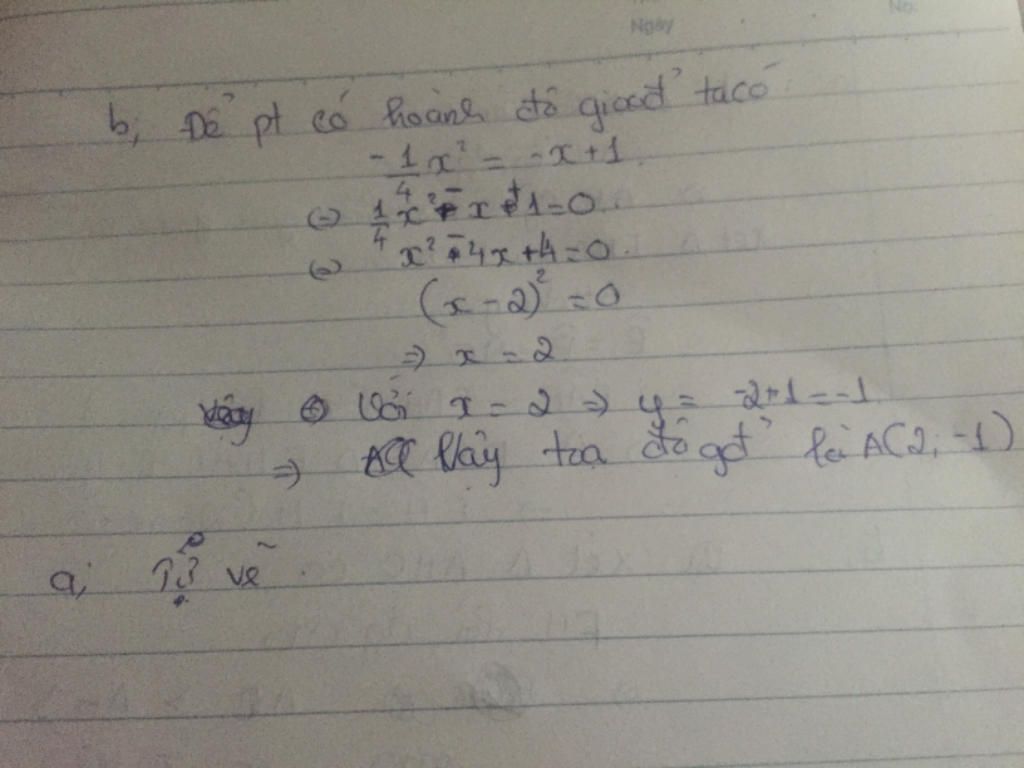 Ngày
No.
b, Để pt có hoành độ giaođ' ta có
-1/4 x² = -x+1
(=) 1/4 x² - x + 1 = 0
(=) x² - 4x + 4 = 0
(x - 2)² = 0
=> x = 2
Với x = 2 => y = -2+1 = -1
=> Vậy tọa độ gđ' là A(2; -1)
a, Tự vẽ.